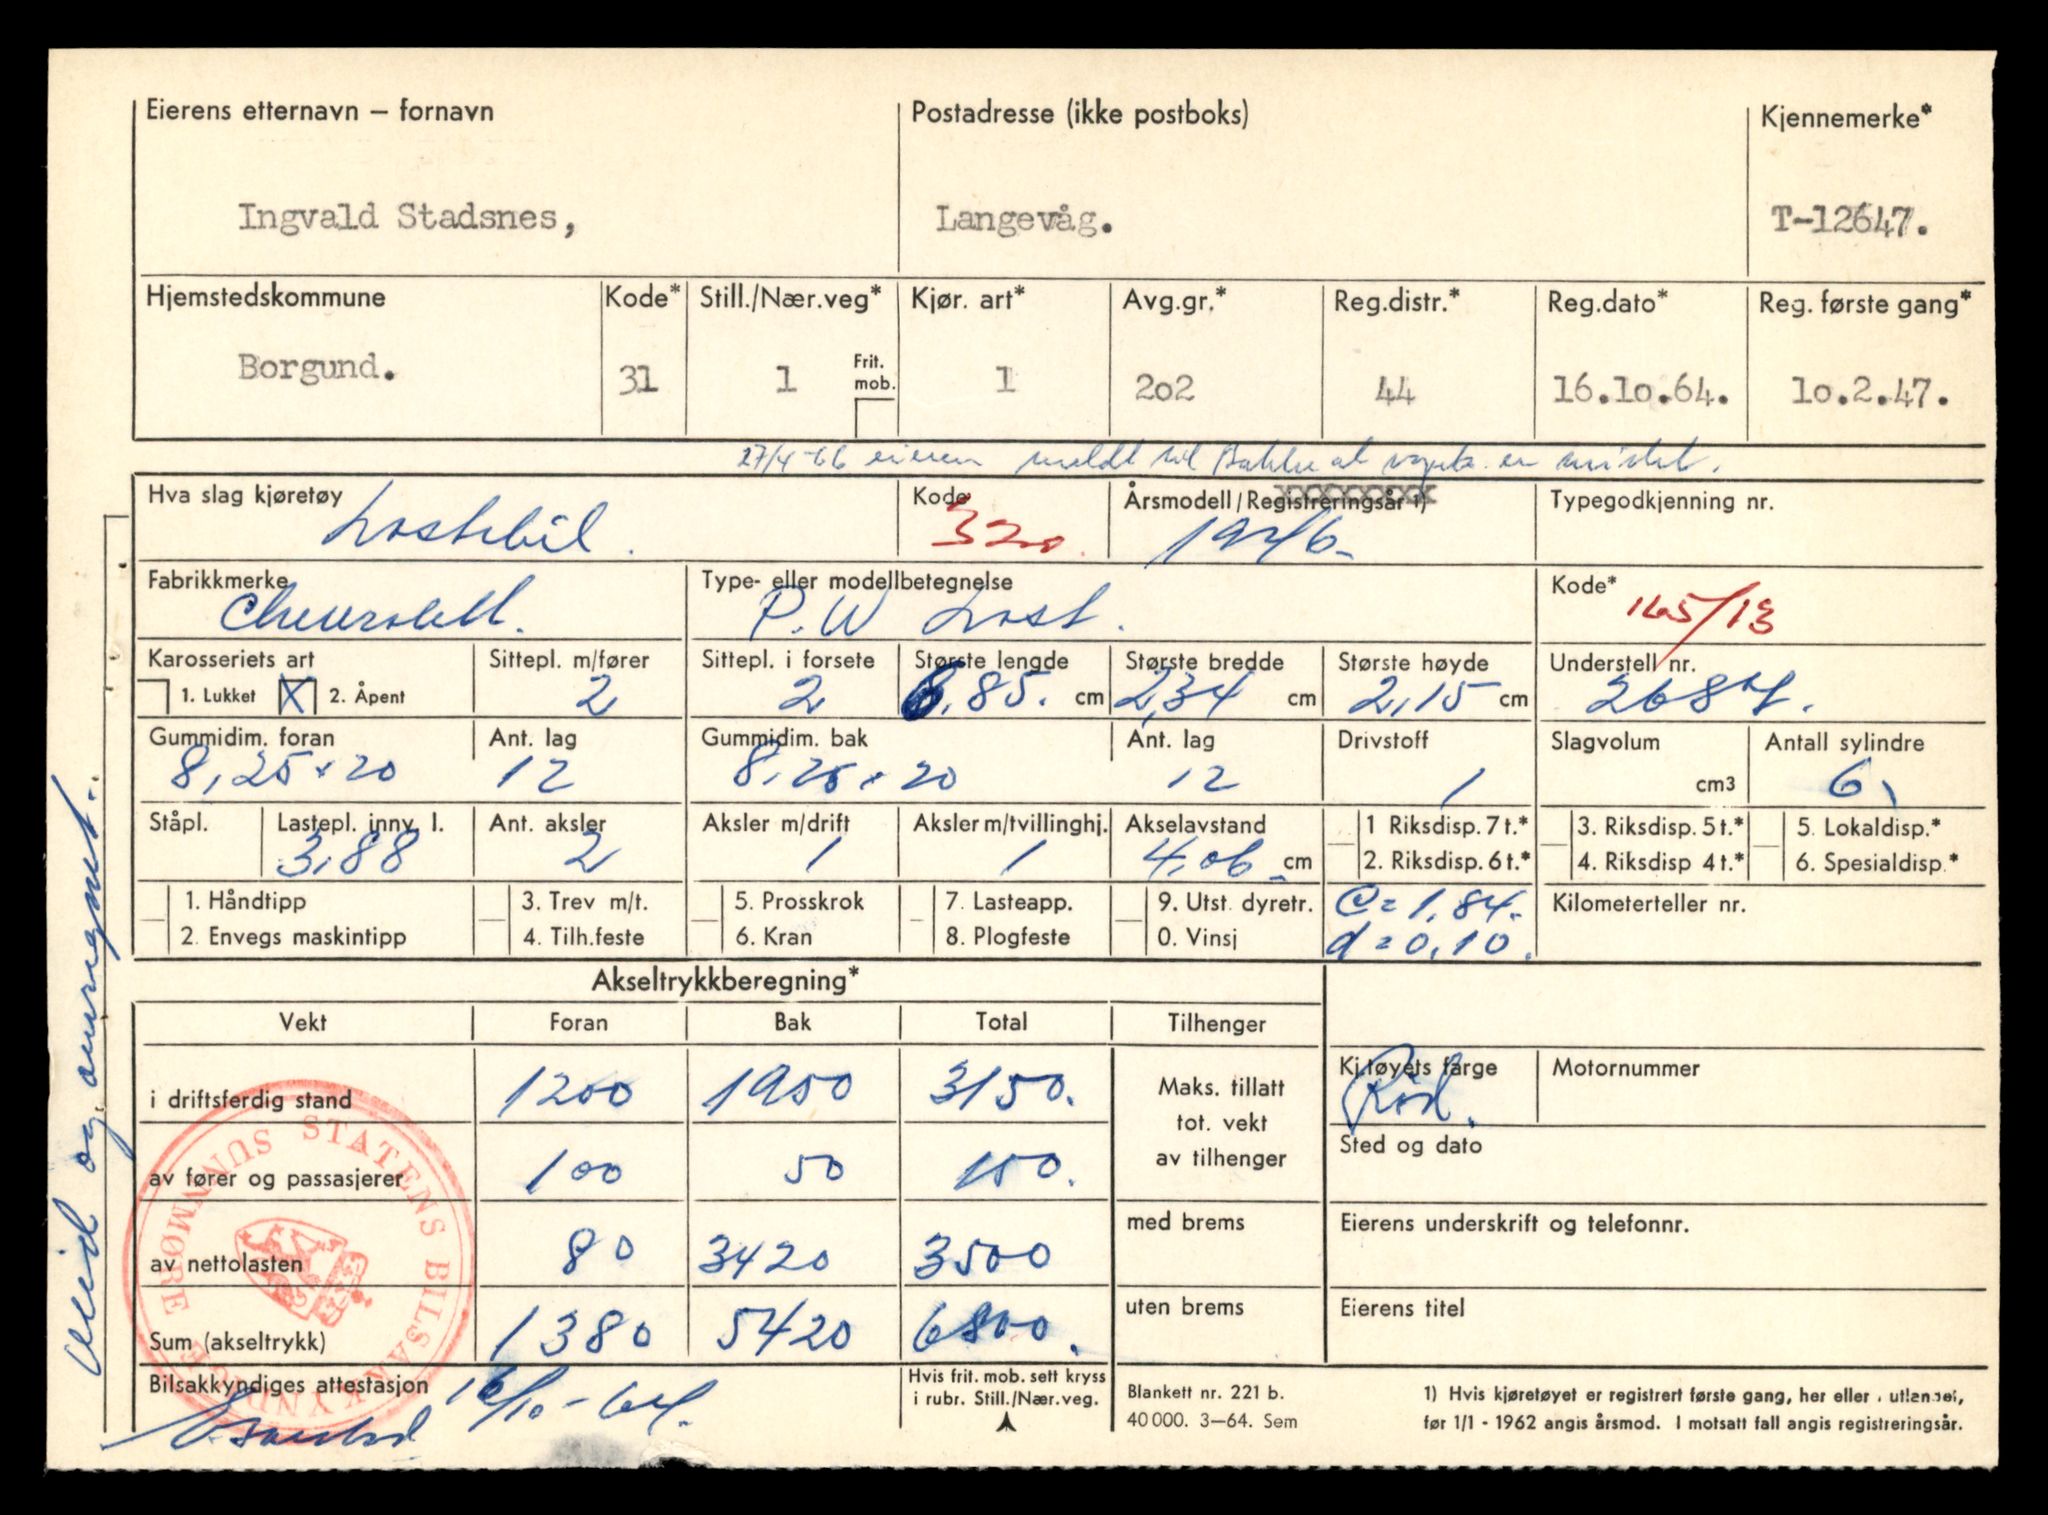 Eierens etternavn – fornavn Postadresse (ikke postboks) Kjennemerke*
Ingvald Stadsnes, Langevåg. T-12647.
Hjemstedskommune Kode* Still./Nær.veg* Kjør. art* Avg.gr.* Reg.distr.* Reg.dato* Reg. første gang*
Borgund. 31 1 Frit. mob. 1 202 44 16.10.64. 10.2.47.
27/4-66 eieren meldt til Bakke at er mistet.
Hva slag kjøretøy Kode Årsmodell/Registreringsår 1) Typegodkjenning nr.
Lastebil. 320. 1946-
Fabrikkmerke Type- eller modellbetegnelse Kode*
Chevrolett. P.W Last. 165/13
Karosseriets art Sittepl. m/fører Sittepl. i forsete Største lengde Største bredde Største høyde Understell nr.
1. Lukket X 2. Åpent 2 2 6,85. cm 2,34 cm 2,15 cm
Gummidim. foran Ant. lag Gummidim. bak Ant. lag Drivstoff Slagvolum Antall sylindre
8,25x20 12 8,25x20 12 1 cm3 6,
Ståpl. Lastepl. innv. l. Ant. aksler Aksler m/drift Aksler m/tvillinghj. Akselavstand 1 Riksdisp. 7 t.* 3. Riksdisp. 5 t.* 5. Lokaldisp.*
3,88 2 1 1 4,06 cm 2. Riksdisp. 6 t.* 4. Riksdisp 4 t.* 6. Spesialdisp.*
1. Håndtipp 3. Trev m/t. 5. Prosskrok 7. Lasteapp. 9. Utst. dyretr. C=1,84. Kilometerteller nr.
2. Envegs maskintipp 4. Tilh.feste 6. Kran 8. Plogfeste 0. Vinsj d=0,10.
Akseltrykkberegning*
Vekt Foran Bak Total Tilhenger
i driftsferdig stand 1200 1950 3150. Maks. tillatt tot. vekt av tilhenger Kj.tøyets farge Motornummer
Rød.
Sted og dato
av fører og passasjerer 100 50 150.
med brems Eierens underskrift og telefonnr.
av nettolasten 80 3420 3500
uten brems Eierens titel
Sum (akseltrykk) 1380 5420 6800.
Bilsakkyndiges attestasjon 16/10-64.
Hvis frit. mob. sett kryss
i rubr. Still./Nær.veg.
Blankett nr. 221 b.
40 000. 3–64. Sem
1) Hvis kjøretøyet er registrert første gang, her eller i utlandet,
før 1/1 - 1962 angis årsmod. I motsatt fall angis registreringsår.
STATENS BILSAKKYNDIGE SUNNMØRE
Veid og omregnet.